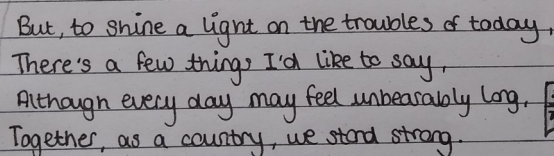 But, to shine a light on the troubles of today,
There's a few things I'd like to say,
Although every day may feel unbearably long,
Together, as a country, we stand strong.